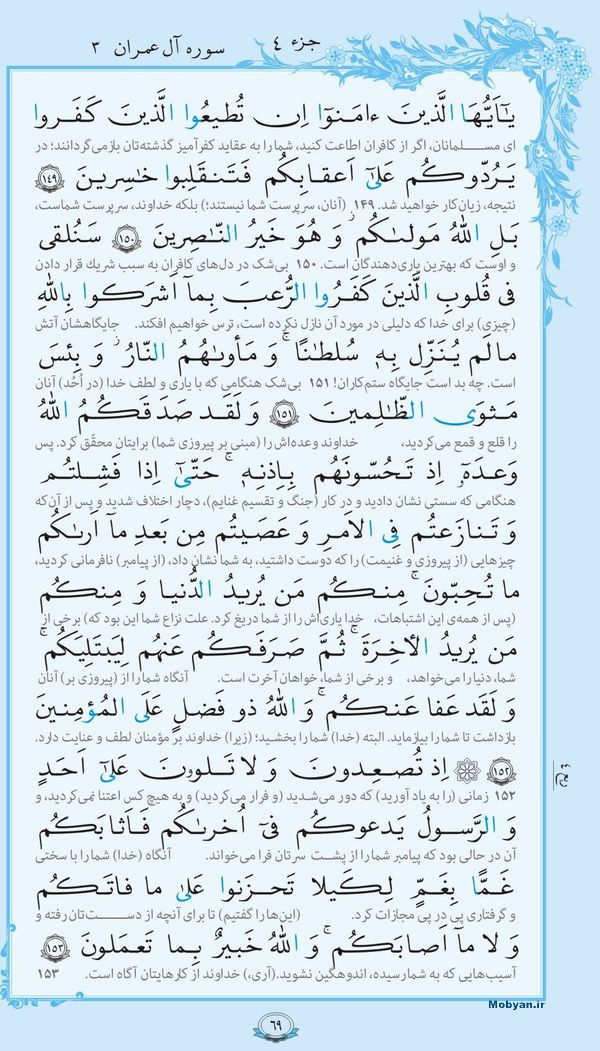 جزء ٤
سوره آل عمران ٣
یٰۤاَیُّهَا الَّذینَ ءامَنوۤا اِن تُطیعُوا الَّذینَ کَفَروا
ای مسـلمانان، اگر از کافران اطاعت کنید، شما را به عقاید کفرآمیز گذشته‌تان بازمی‌گردانند؛ در
یَرُدّوکُم عَلیٰۤ اَعقابِکُم فَتَنقَلِبوا خاسِرینَ ١٤٩
نتیجه، زیان‌کار خواهید شد. ١٤٩ (آنان، سرپرست شما نیستند؛) بلکه خداوند، سرپرست شماست،
بَلِ اللّٰهُ مَولىٰکُم ۖ وَ هُوَ خَیرُ النّاصِرینَ ١٥٠ سَنُلقی
و اوست که بهترین یاری‌دهندگان است. ١٥٠ بی‌شک در دل‌های کافران به سبب شریك قرار دادن
فی قُلوبِ الَّذینَ کَفَرُوا الرُّعبَ بِماۤ اَشرَکوا بِاللّٰهِ
(چیزی) برای خدا که دلیلی در مورد آن نازل نکرده است، ترس خواهیم افکند. جایگاهشان آتش
ما لَم یُنَزِّل بِهٖ سُلطٰنًا ۖ وَ مَأوىٰهُمُ النّارُ ۚ وَ بِئسَ
است. چه بد است جایگاه ستم‌کاران! ١٥١ بی‌شک هنگامی که با یاری و لطف خدا (در اُحُد) آنان
مَثوَی الظّالِمینَ ١٥١ وَ لَقَد صَدَقَکُمُ اللّٰهُ
را قلع و قمع می‌کردید، خداوند وعده‌اش را (مبنی بر پیروزی شما) برایتان محقّق کرد. پس
وَعدَهٗۤ اِذ تَحُسّونَهُم بِاِذنِهٖ ۖ حَتّیٰۤ اِذا فَشِلتُم
هنگامی که سستی نشان دادید و در کار (جنگ و تقسیم غنایم)، دچار اختلاف شدید و پس از آن‌که
وَ تَنازَعتُم فِی الاَمرِ وَ عَصَیتُم مِن بَعدِ ماۤ اَرىٰکُم
چیزهایی (از پیروزی و غنیمت) را که دوست داشتید، به شما نشان داد، (از پیامبر) نافرمانی کردید،
ما تُحِبّونَ ۚ مِنکُم مَن یُریدُ الدُّنیا وَ مِنکُم
(پس از همه‌ی این اشتباهات، خدا یاری‌اش را از شما دریغ کرد. علت نزاع شما این بود که) برخی از
مَن یُریدُ الـٔاخِرَةَ ۚ ثُمَّ صَرَفَکُم عَنهُم لِیَبتَلِیَکُم ۖ
شما، دنیا را می‌خواهد، و برخی از شما، خواهان آخرت است. آنگاه شما را از (پیروزی بر) آنان
وَ لَقَد عَفا عَنکُم ۗ وَ اللّٰهُ ذو فَضلٍ عَلَی المُؤمِنینَ
بازداشت تا شما را بیازماید. البته (خدا) شما را بخشید؛ (زیرا) خداوند بر مؤمنان لطف و عنایت دارد.
١٥٢ اِذ تُصعِدونَ وَ لا تَلوونَ عَلیٰۤ اَحَدٍ
١٥٢ زمانی (را به یاد آورید) که دور می‌شدید (و فرار می‌کردید) و به هیچ کس اعتنا نمی‌کردید، و
وَ الرَّسولُ یَدعوکُم فیۤ اُخرىٰکُم فَاَثابَکُم
آن در حالی بود که پیامبر شما را از پشت سرتان فرا می‌خواند. آنگاه (خدا) شما را با سختی
غَمًّا بِغَمٍّ لِکَیلا تَحزَنوا عَلیٰ ما فاتَکُم
و گرفتاری پی در پی مجازات کرد. (این‌ها را گفتیم) تا برای آنچه از دست‌تان رفته و
وَ لا ماۤ اَصابَکُم ۗ وَ اللّٰهُ خَبیرٌ بِما تَعمَلونَ ١٥٣
آسیب‌هایی که به شما رسیده، اندوهگین نشوید. (آری،) خداوند از کارهایتان آگاه است. ١٥٣
٦٩
Mobyan.ir